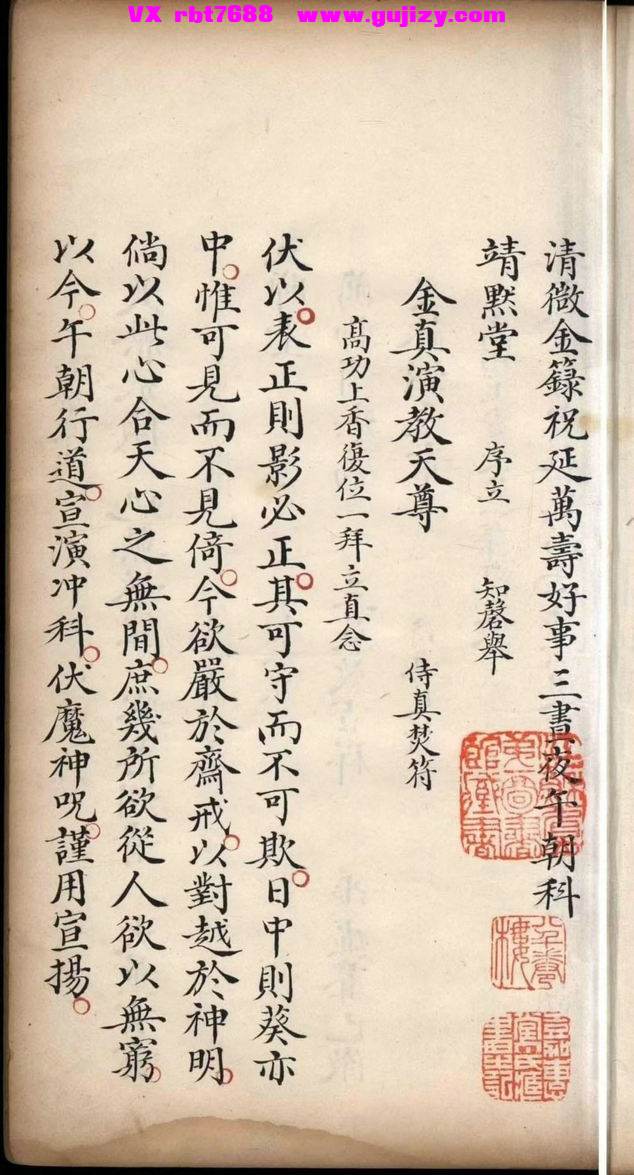 VX rbt7688 www.gujizy.com
清微金籙祝延萬壽好事三晝夜午朝科
靖默堂 序立 知磬舉
金真演教天尊 侍真焚符
高功上香復位一拜立直念
伏以。表正則影必正。其可守而不可欺。日中則葵亦
中。惟可見而不見倚。今欲嚴於齋戒。以對越於神明。
倘以此心合天心之無間。庶幾所欲從人欲以無窮。
以今。午朝行道。宣演冲科。伏魔神呪。謹用宣揚。